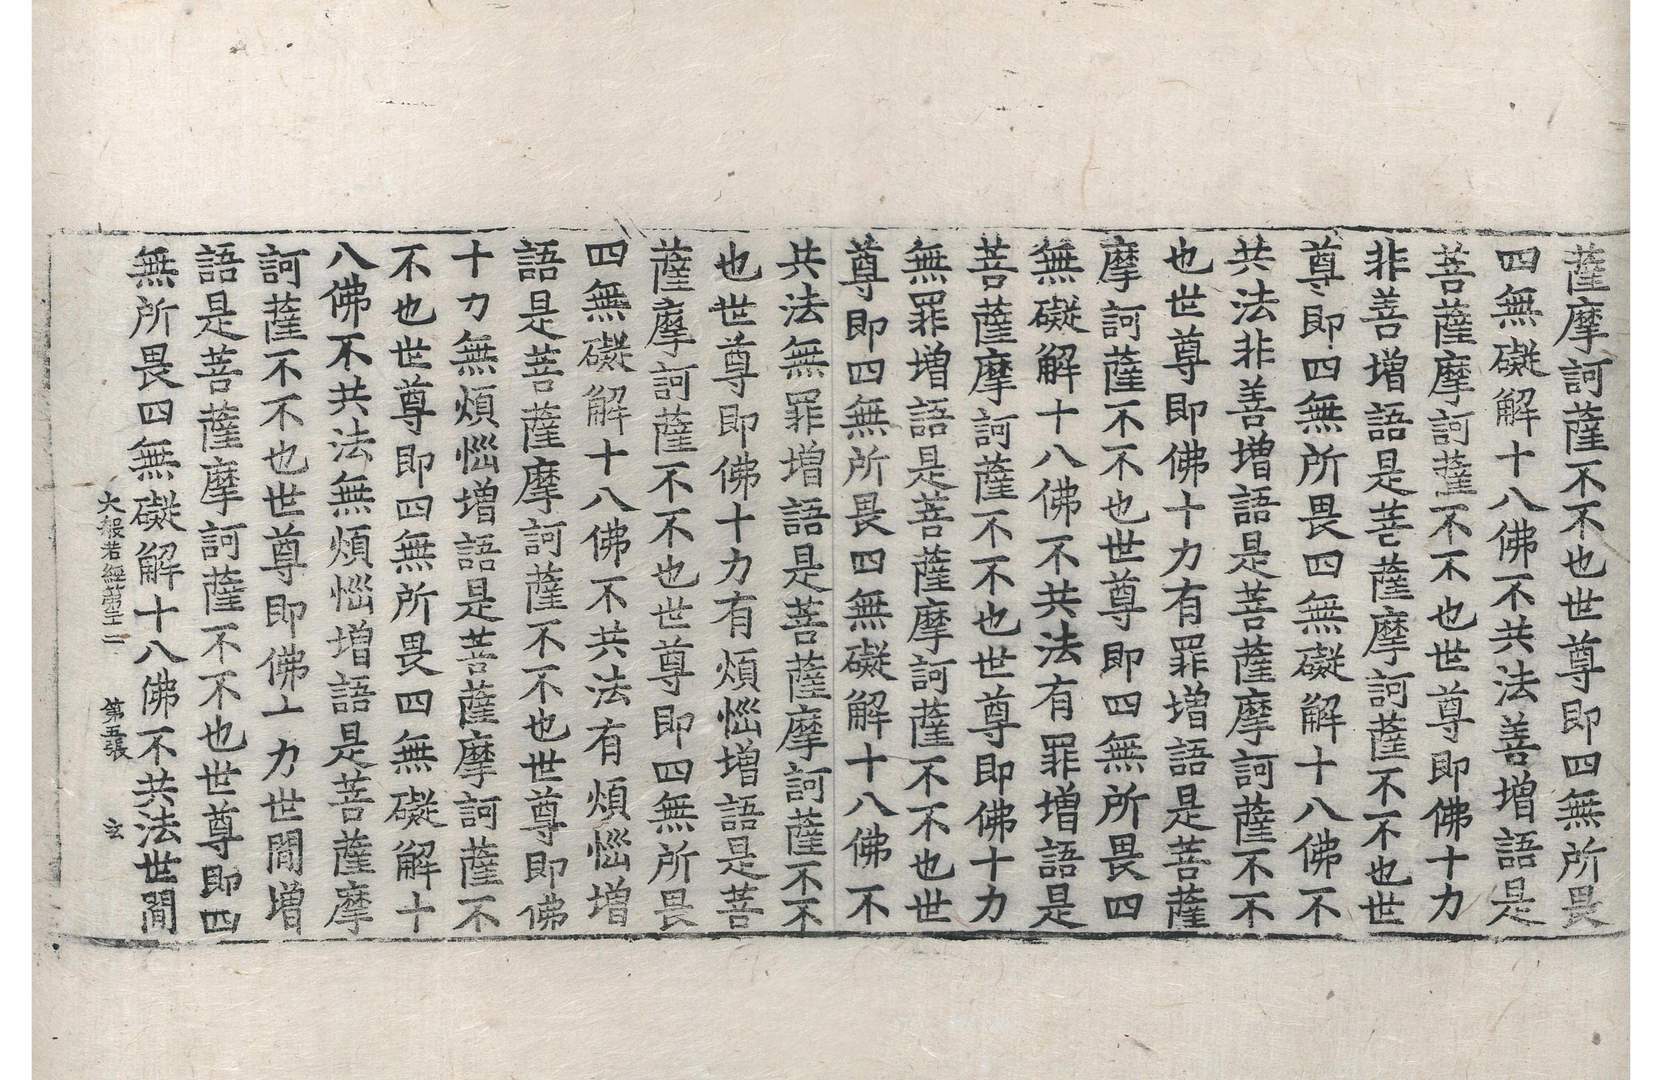 薩摩訶薩不不也世尊即四無所畏
四無礙解十八佛不共法善增語是
菩薩摩訶薩不不也世尊即佛十力
非善增語是菩薩摩訶薩不不也世
尊即四無所畏四無礙解十八佛不
共法非善增語是菩薩摩訶薩不不
也世尊即佛十力有罪增語是菩薩
摩訶薩不不也世尊即四無所畏四
無礙解十八佛不共法有罪增語是
菩薩摩訶薩不不也世尊即佛十力
無罪增語是菩薩摩訶薩不不也世
尊即四無所畏四無礙解十八佛不
共法無罪增語是菩薩摩訶薩不不
也世尊即佛十力有煩惱增語是菩
薩摩訶薩不不也世尊即四無所畏
四無礙解十八佛不共法有煩惱增
語是菩薩摩訶薩不不也世尊即佛
十力無煩惱增語是菩薩摩訶薩不
不也世尊即四無所畏四無礙解十
八佛不共法無煩惱增語是菩薩摩
訶薩不不也世尊即佛十力世閒增
語是菩薩摩訶薩不不也世尊即四
無所畏四無礙解十八佛不共法世閒
大般若經第二十二 第五張 玄